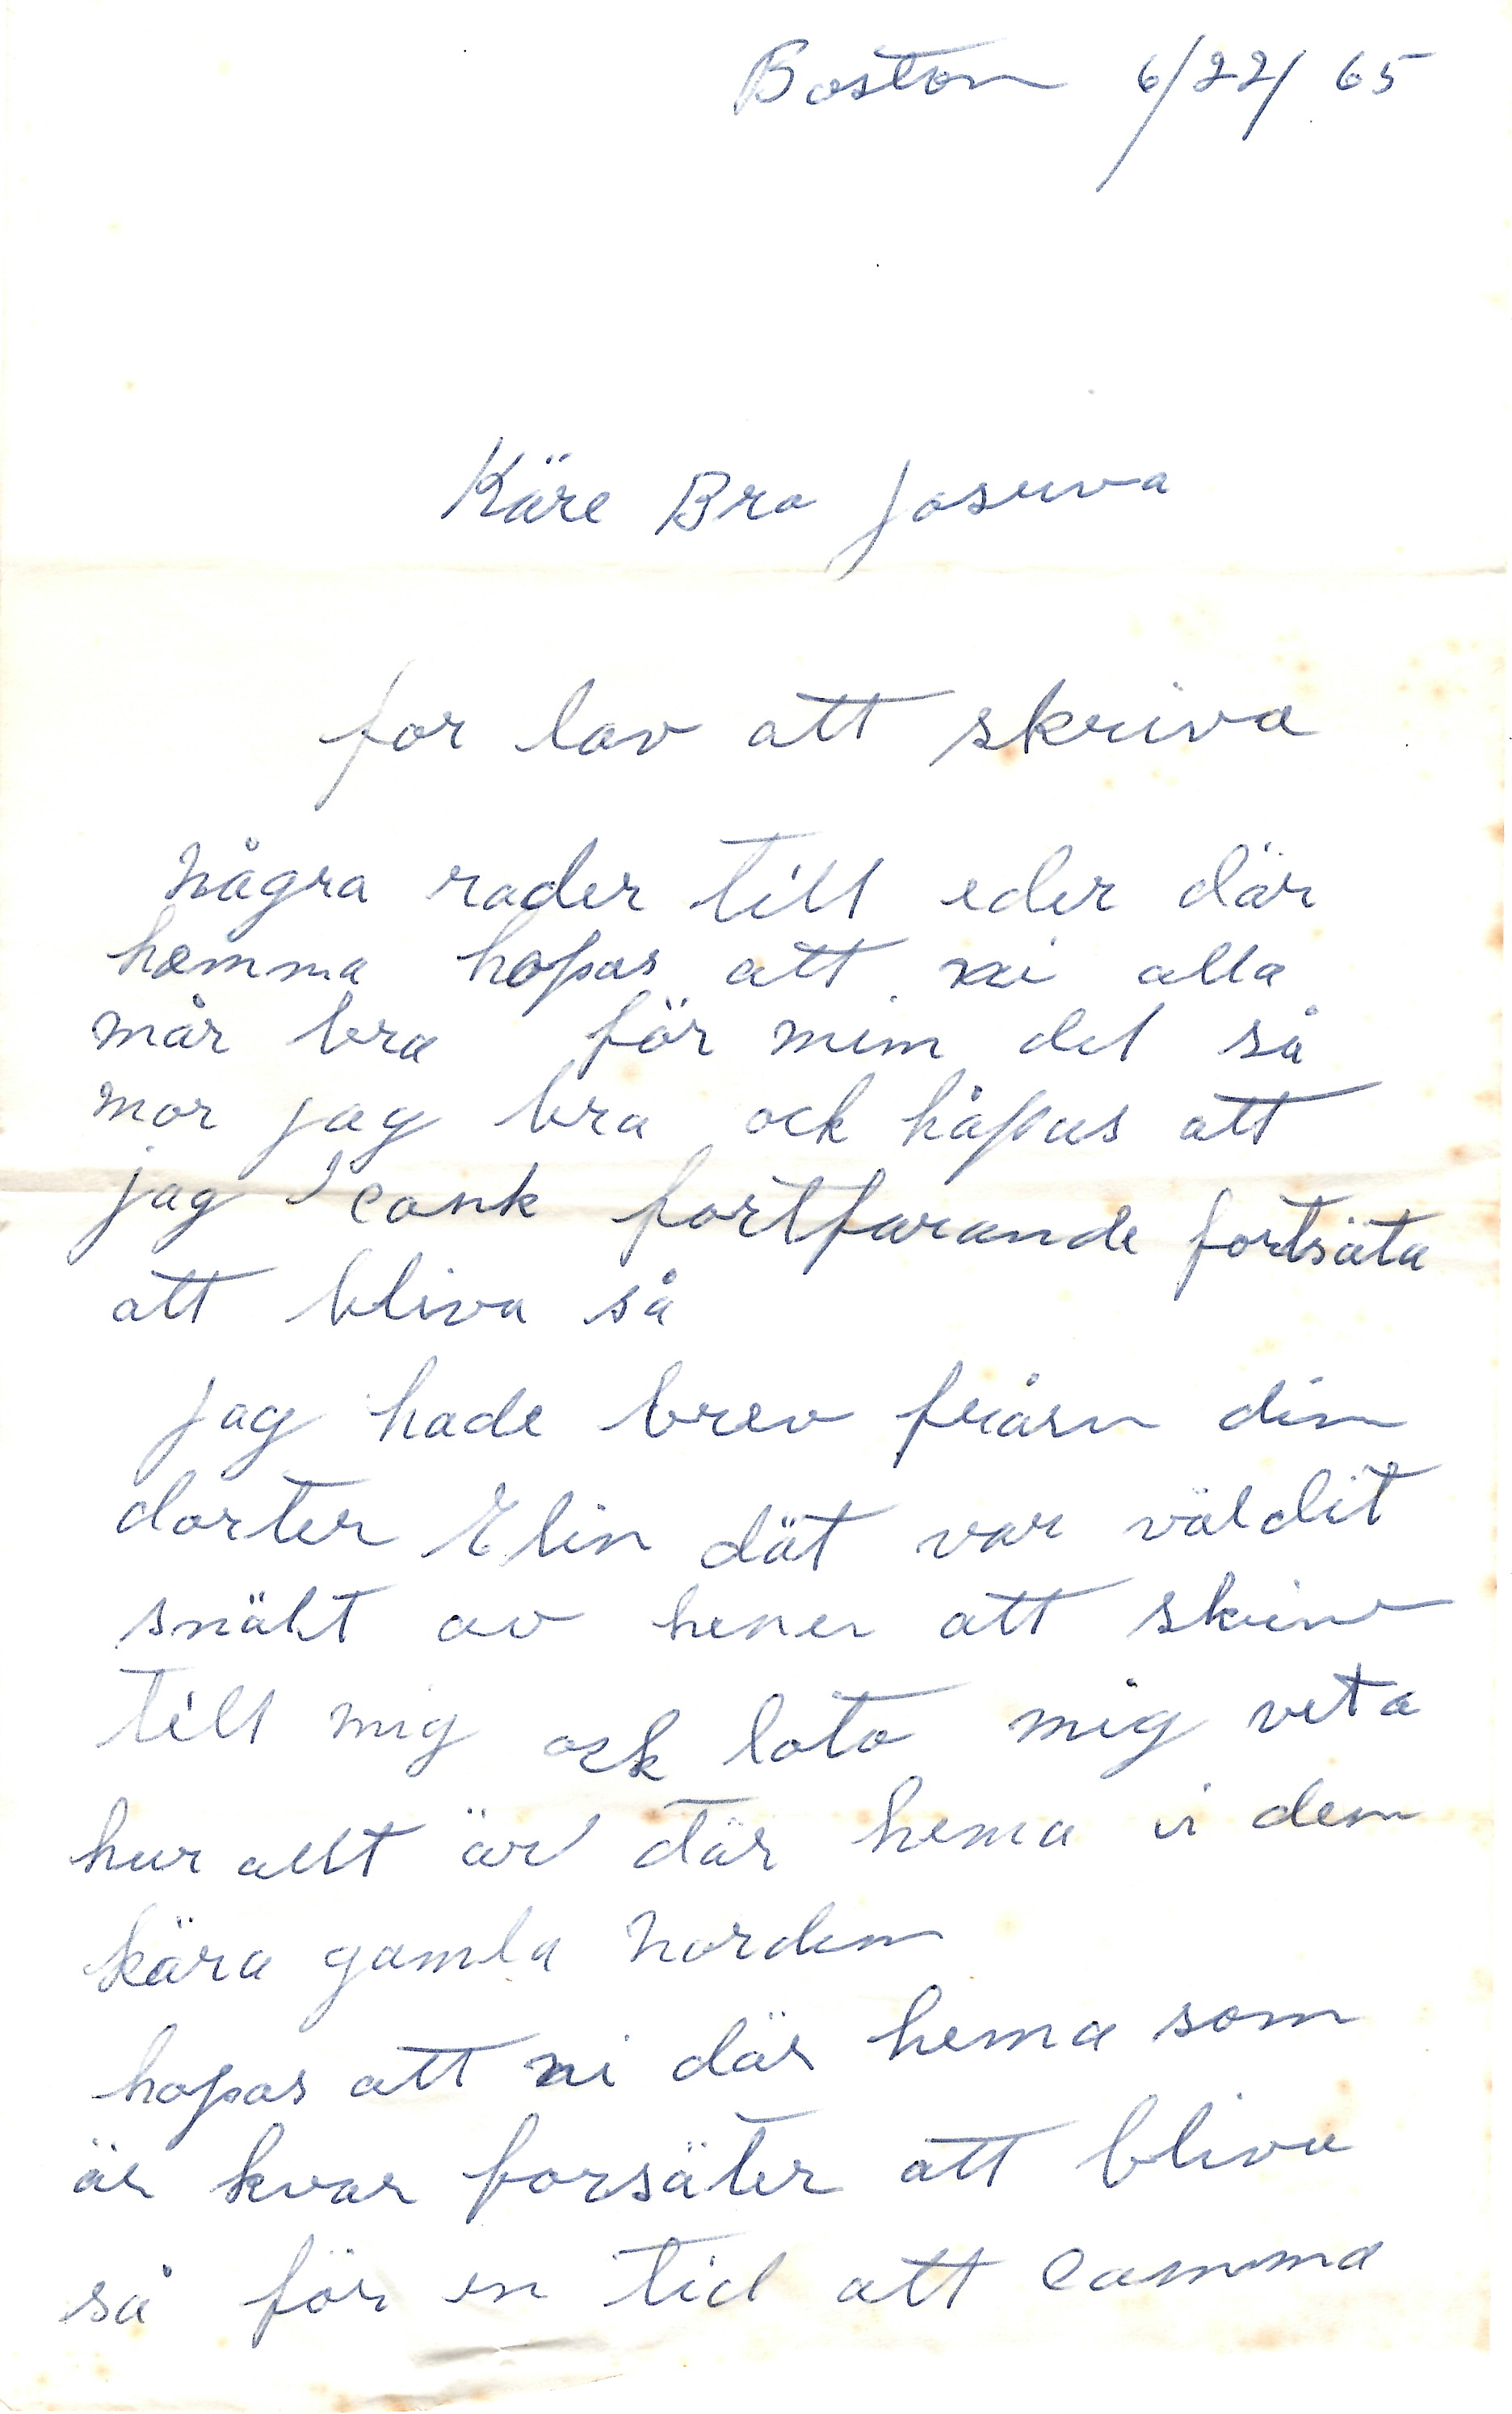 Boston 6/22/65
Käre Bro Josuva
for lov att skriva
några rader till eder där
hemma hopas att ni alla
mår bra för min del så
mor jag bra ock håpas att
jag cank fortfarande fortsäta
att bliva så
jag hade brev från din
dorter Elin dät var väldit
snäht av hener att skriva
till mig ock lota mig veta
hur allt är där hema i den
kära gamla norden
hopas att ni där hema som
är kvar forsäter att bliva
så för en tid att comma